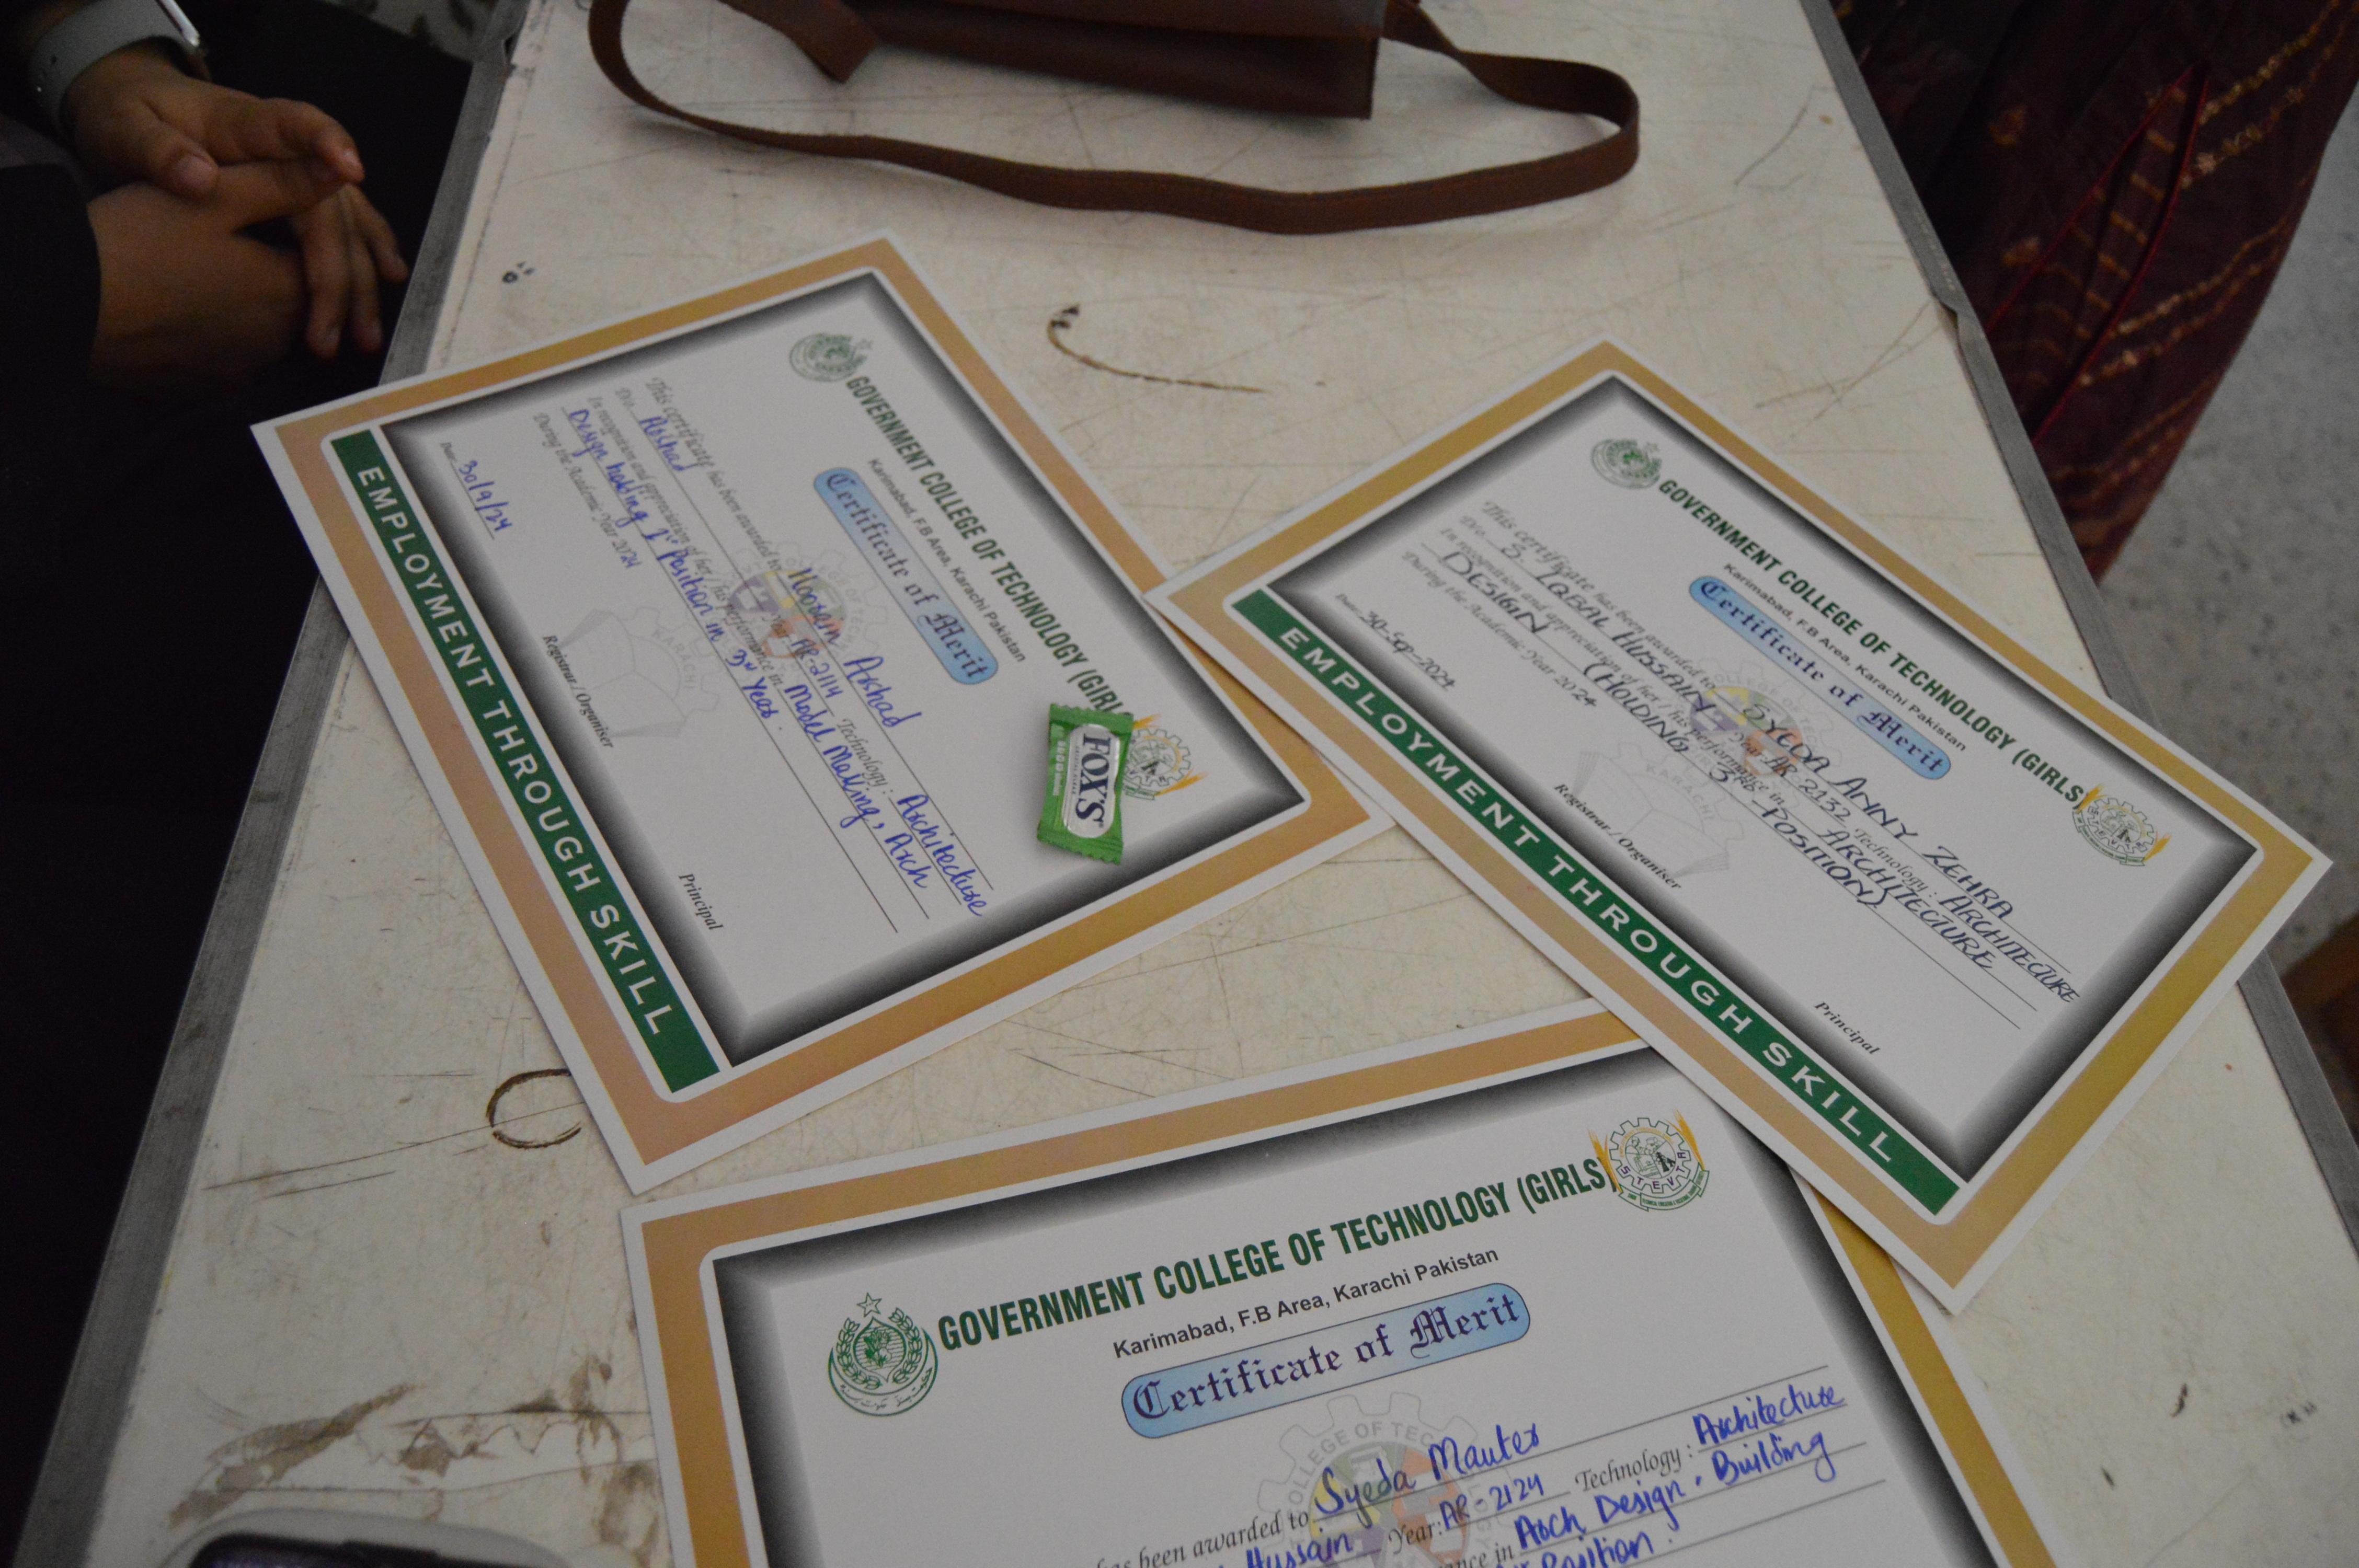 GOVERNMENT COLLEGE OF TECHNOLOGY (GIRLS
Karimabad, F.B Area, Karachi Pakistan
Certificate of Merit
This certificate has been awarded to Hoorain Arshad
D/o. Arshad Year: AR-2114 Technology: Architecture
In recognition and appreciation of her / his performance in Model Making, Arch
Design holding 1st Position in 3rd Year.
During the Academic Year 2024
Date: 30/9/24
Registrar / Organiser
Principal
EMPLOYMENT THROUGH SKILL
KARACHI
FOX'S
GOVERNMENT COLLEGE OF TECHNOLOGY (GIRLS)
Karimabad, F.B Area, Karachi Pakistan
Certificate of Merit
This certificate has been awarded to SYEDA ANNY ZEHRA
D/o. S. IQBAL HUSSAIN Year: AR 2132 Technology: ARCHITECTURE
In recognition and appreciation of her / his performance in ARCHITECTURE
DESIGN (HOLDING 3RD POSITION)
During the Academic Year 2024
Date: 30-Sep-2024
Registrar / Organiser
Principal
EMPLOYMENT THROUGH SKILL
KARACHI
GOVERNMENT COLLEGE OF TECHNOLOGY (GIRLS)
STEVTA
Karimabad, F.B Area, Karachi Pakistan
Certificate of Merit
COLLEGE OF TEC
has been awarded to Syeda Mauter
Hussain Year: AR-2124 Technology: Architecture
in Arch Design, Building
Position.